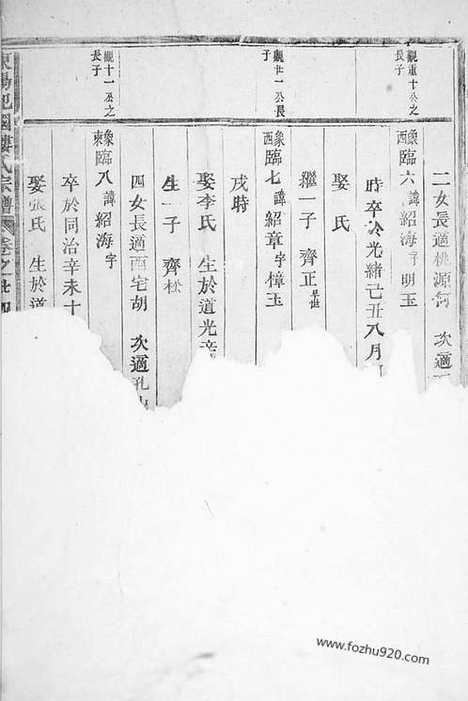 觀重十公之
長子
觀世一公長
子
觀十一公之
長子
二女長適桃源何 次適
象西臨六諱紹海字明玉
時卒於光緒己丑八月
娶氏
繼一子 齊正
象西臨七諱紹章字樟玉
戌時
娶李氏 生於道光
生一子 齊
四女長適西宅胡 次適孔山
象東臨八諱紹海字
卒於同治辛未十
娶張氏 生於道
東陽杞國樓氏宗譜 卷之廿四
www.fozhu920.com